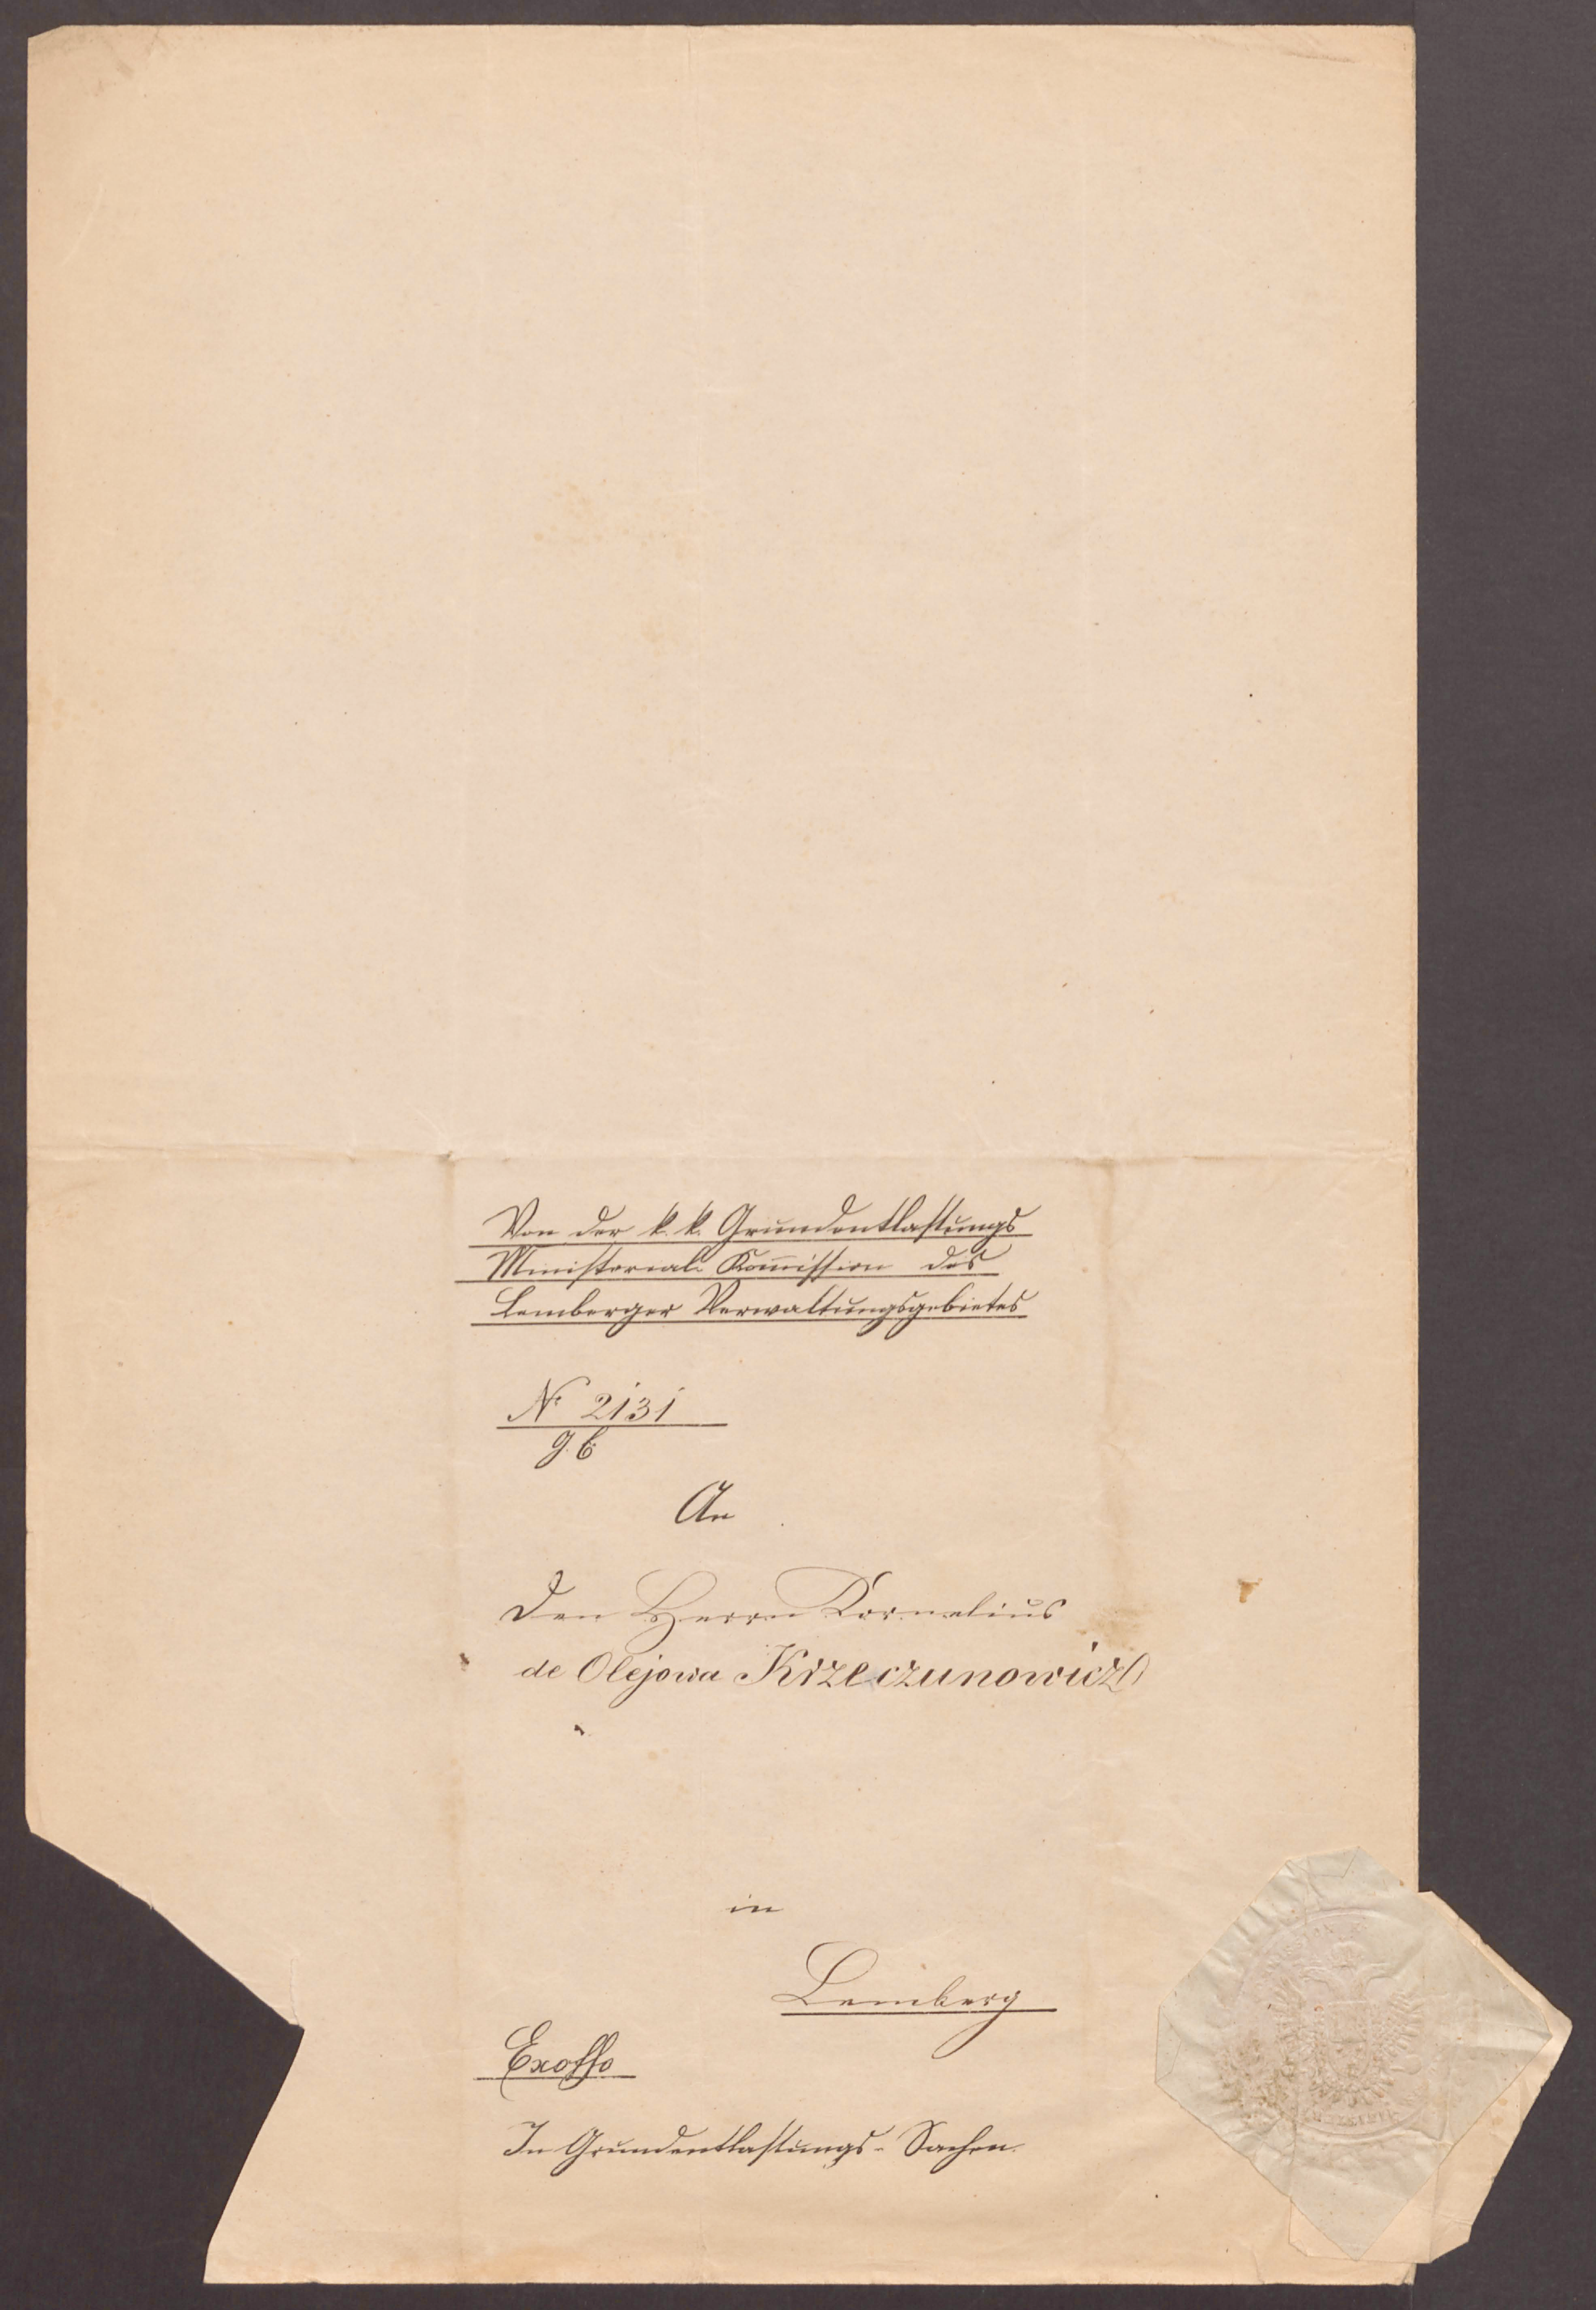 Von der k. k. Grundentlastungs
Ministerial-Kom̅ission des
Lemberger Verwaltungsgebietes
Nr 2131
An
den Herrn Kornelius
de Olejowa Krzeczunowicz
in
Lemberg
Exoffo
In Grundentlastungs-Sachen.